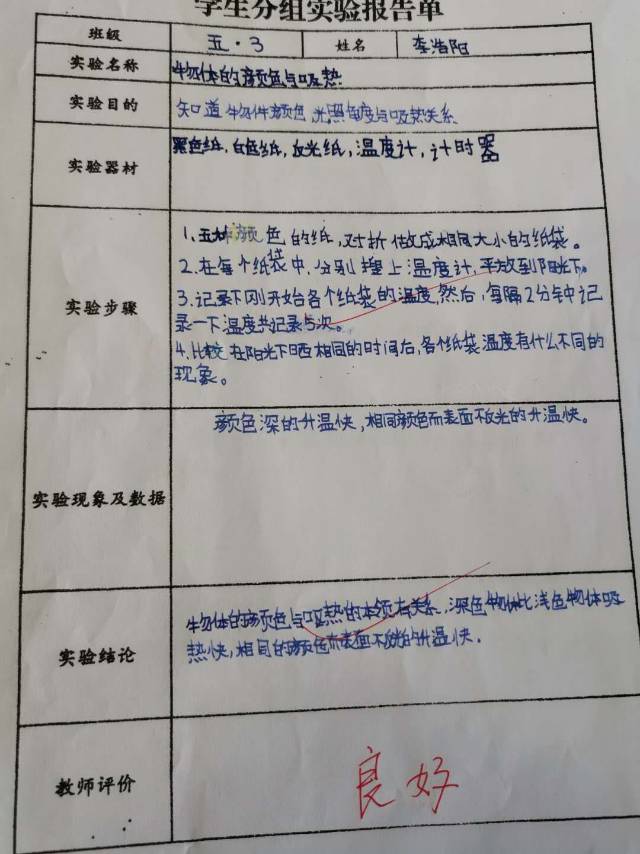 学生分组实验报告单
班级 五·3 姓名 李浩阳
实验名称 物体的颜色与吸热
实验目的 知道物体颜色、光照角度与吸热关系
实验器材 黑色纸，白色纸，反光纸，温度计，计时器
实验步骤
1、五种颜色的纸，对折做成相同大小的纸袋。
2、在每个纸袋中，分别插上温度计，平放到阳光下。
3、记录下刚开始各个纸袋的温度，然后，每隔2分钟记
录一下温度共记录5次。
4、比较在阳光下晒相同的时间后，各个纸袋温度有什么不同的
现象。
实验现象及数据
颜色深的升温快，相同颜色而表面不反光的升温快。
实验结论
物体的颜色与吸热的本领有关系，深色物体比浅色物体吸
热快，相同的颜色而表面不反光的升温快。
教师评价 良好